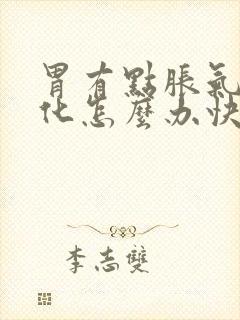 胃有點脹氣
化怎麼办快
李志雙